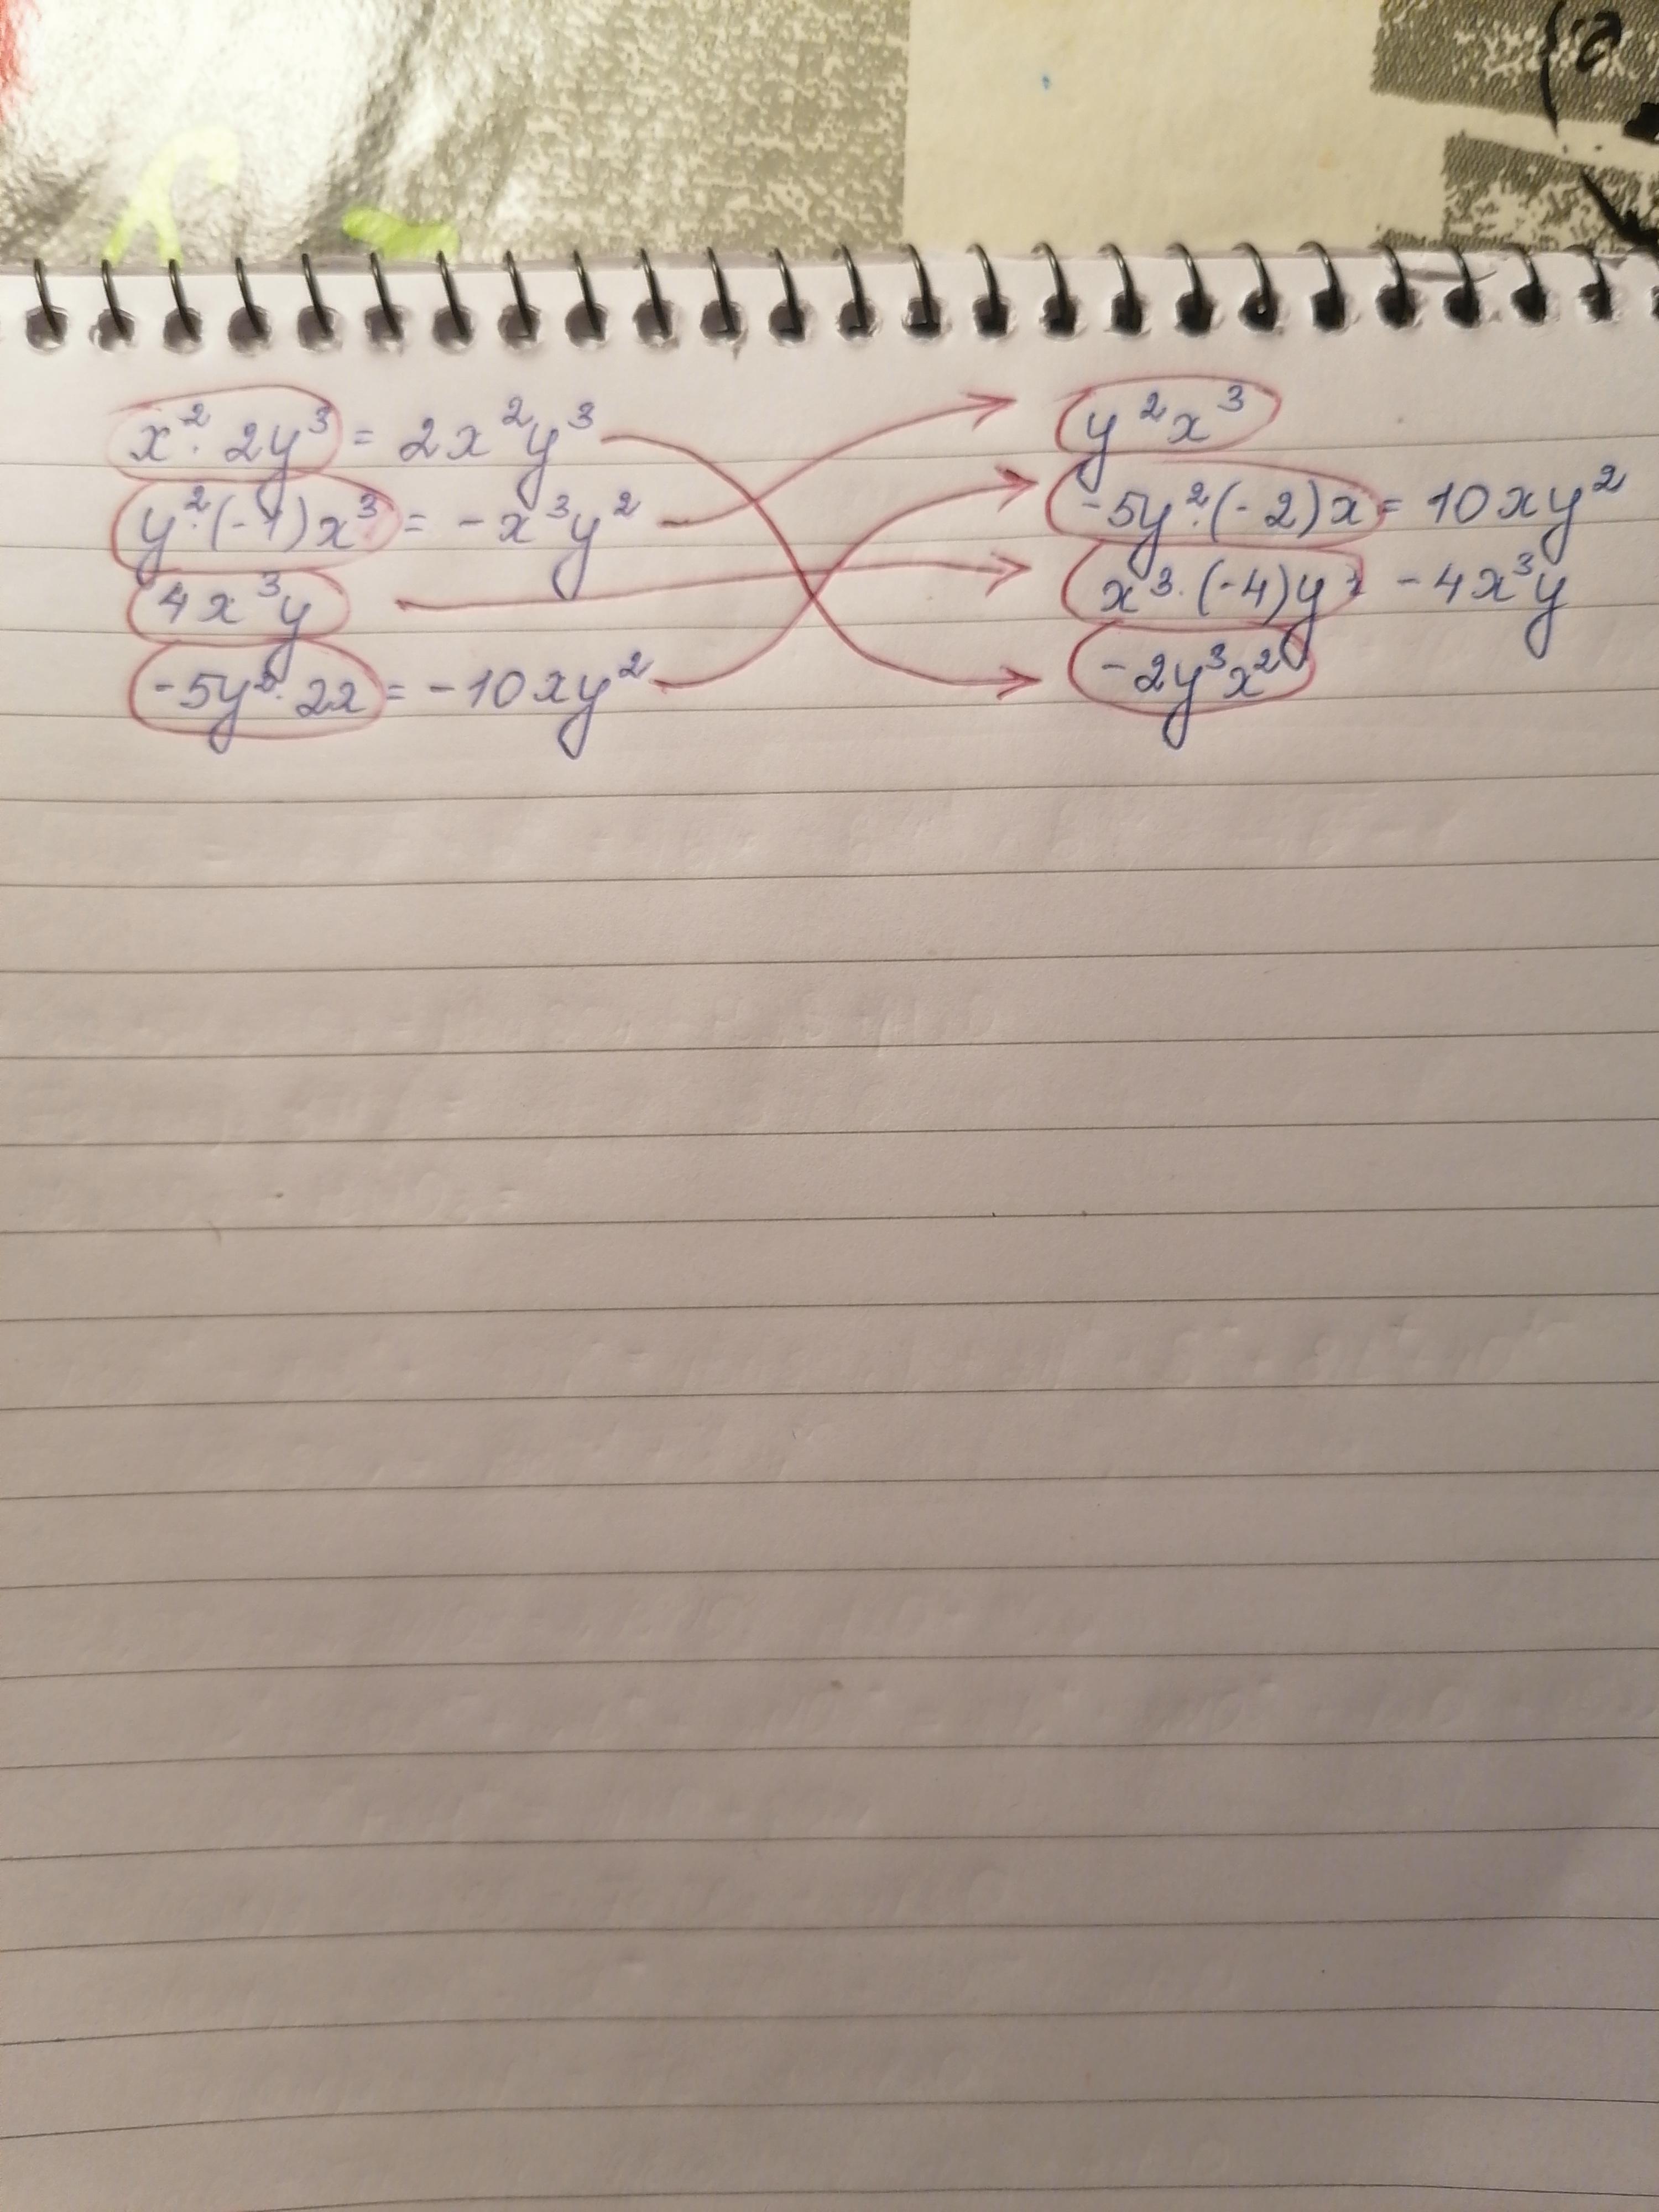 x²·2y³ = 2x²y³
y²·(-1)x³ = -x³y²
4x³y
-5y²·2x = -10xy²
y²x³
-5y²·(-2)x = 10xy²
x³·(-4)y = -4x³y
-2y³x²